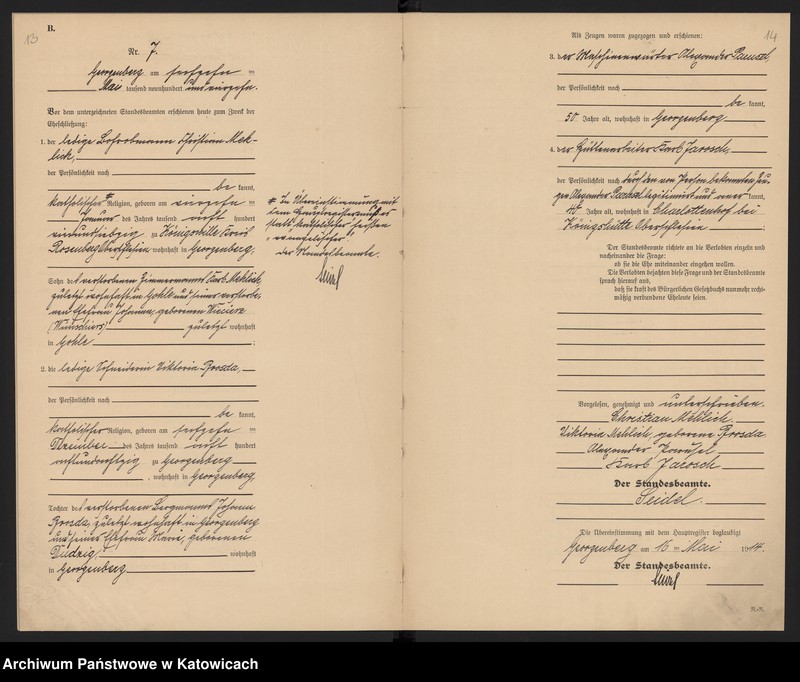 B.
13
Nr. 7.
Georgenberg am sechzehn ten
Mai tausend neunhundert und vierzehn.
Vor dem unterzeichneten Standesbeamten erschienen heute zum Zweck der
Eheschließung:
1. der ledige Christian Meh-
lich,
der Persönlichkeit nach
be kannt,
katholischer Religion, geboren am vierzehn ten
Januar des Jahres tausend acht hundert
vierundsiebzig zu Königshütte Kreis
Rosenberg Oberschlesien wohnhaft in Georgenberg,
Sohn des verstorbenen Zimmermanns Karl Mehlich
zuletzt wohnhaft in Gohle und seiner verstorbe-
nen Ehefrau Johanna, geborenen
zuletzt wohnhaft
in Gohle ;
2. die ledige Schneiderin Viktoria Brosda,
der Persönlichkeit nach
be kannt,
katholischer Religion, geboren am sechzehn ten
Dezember des Jahres tausend acht hundert
achtundachtzig zu Georgenberg
, wohnhaft in Georgenberg,
Tochter des verstorbenen Bergmanns Johann
Brosda, zuletzt wohnhaft in Georgenberg
und seiner Ehefrau Marie, geborenen
Dudzig, wohnhaft
in Georgenberg
In Übereinstimmung mit
dem Hauptregister muß es
statt "katholischer" heißen
"evangelischer".
Der Standesbeamte.
Seidel
14
Als Zeugen waren zugezogen und erschienen:
3. der Maschinenwärter Alexander
der Persönlichkeit nach
be kannt,
50 Jahre alt, wohnhaft in Georgenberg
4. der Hüttenarbeiter Karl Jarosch,
der Persönlichkeit nach durch den von Person bekannten Zeu-
gen Alexander legitimiert und aner kannt,
Jahre alt, wohnhaft in Charlottenhof bei
Königshütte Oberschlesien ;
Der Standesbeamte richtete an die Verlobten einzeln und
nacheinander die Frage:
ob sie die Ehe miteinander eingehen wollen.
Die Verlobten bejahten diese Frage und der Standesbeamte
sprach hierauf aus,
daß sie kraft des Bürgerlichen Gesetzbuchs nunmehr recht-
mäßig verbundene Eheleute seien.
Vorgelesen, genehmigt und unterschrieben.
Christian Mehlich.
Viktoria Mehlich, geborene Brosda
Alexander
Karl Jarosch
Der Standesbeamte.
Seidel.
Die Übereinstimmung mit dem Hauptregister beglaubigt
Georgenberg am 16 ten Mai 1914.
Der Standesbeamte.
Seidel
Archiwum Państwowe w Katowicach